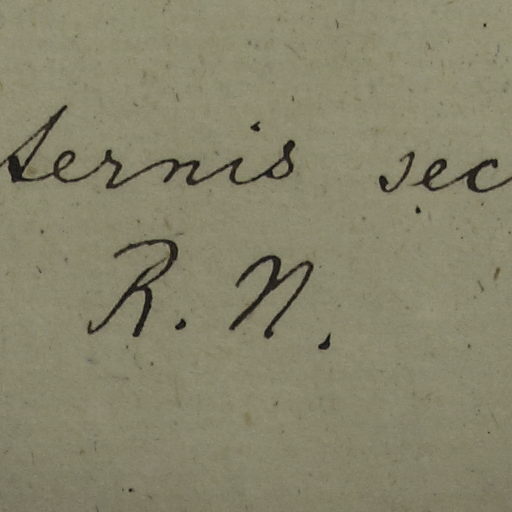 ternis sec
R. N.